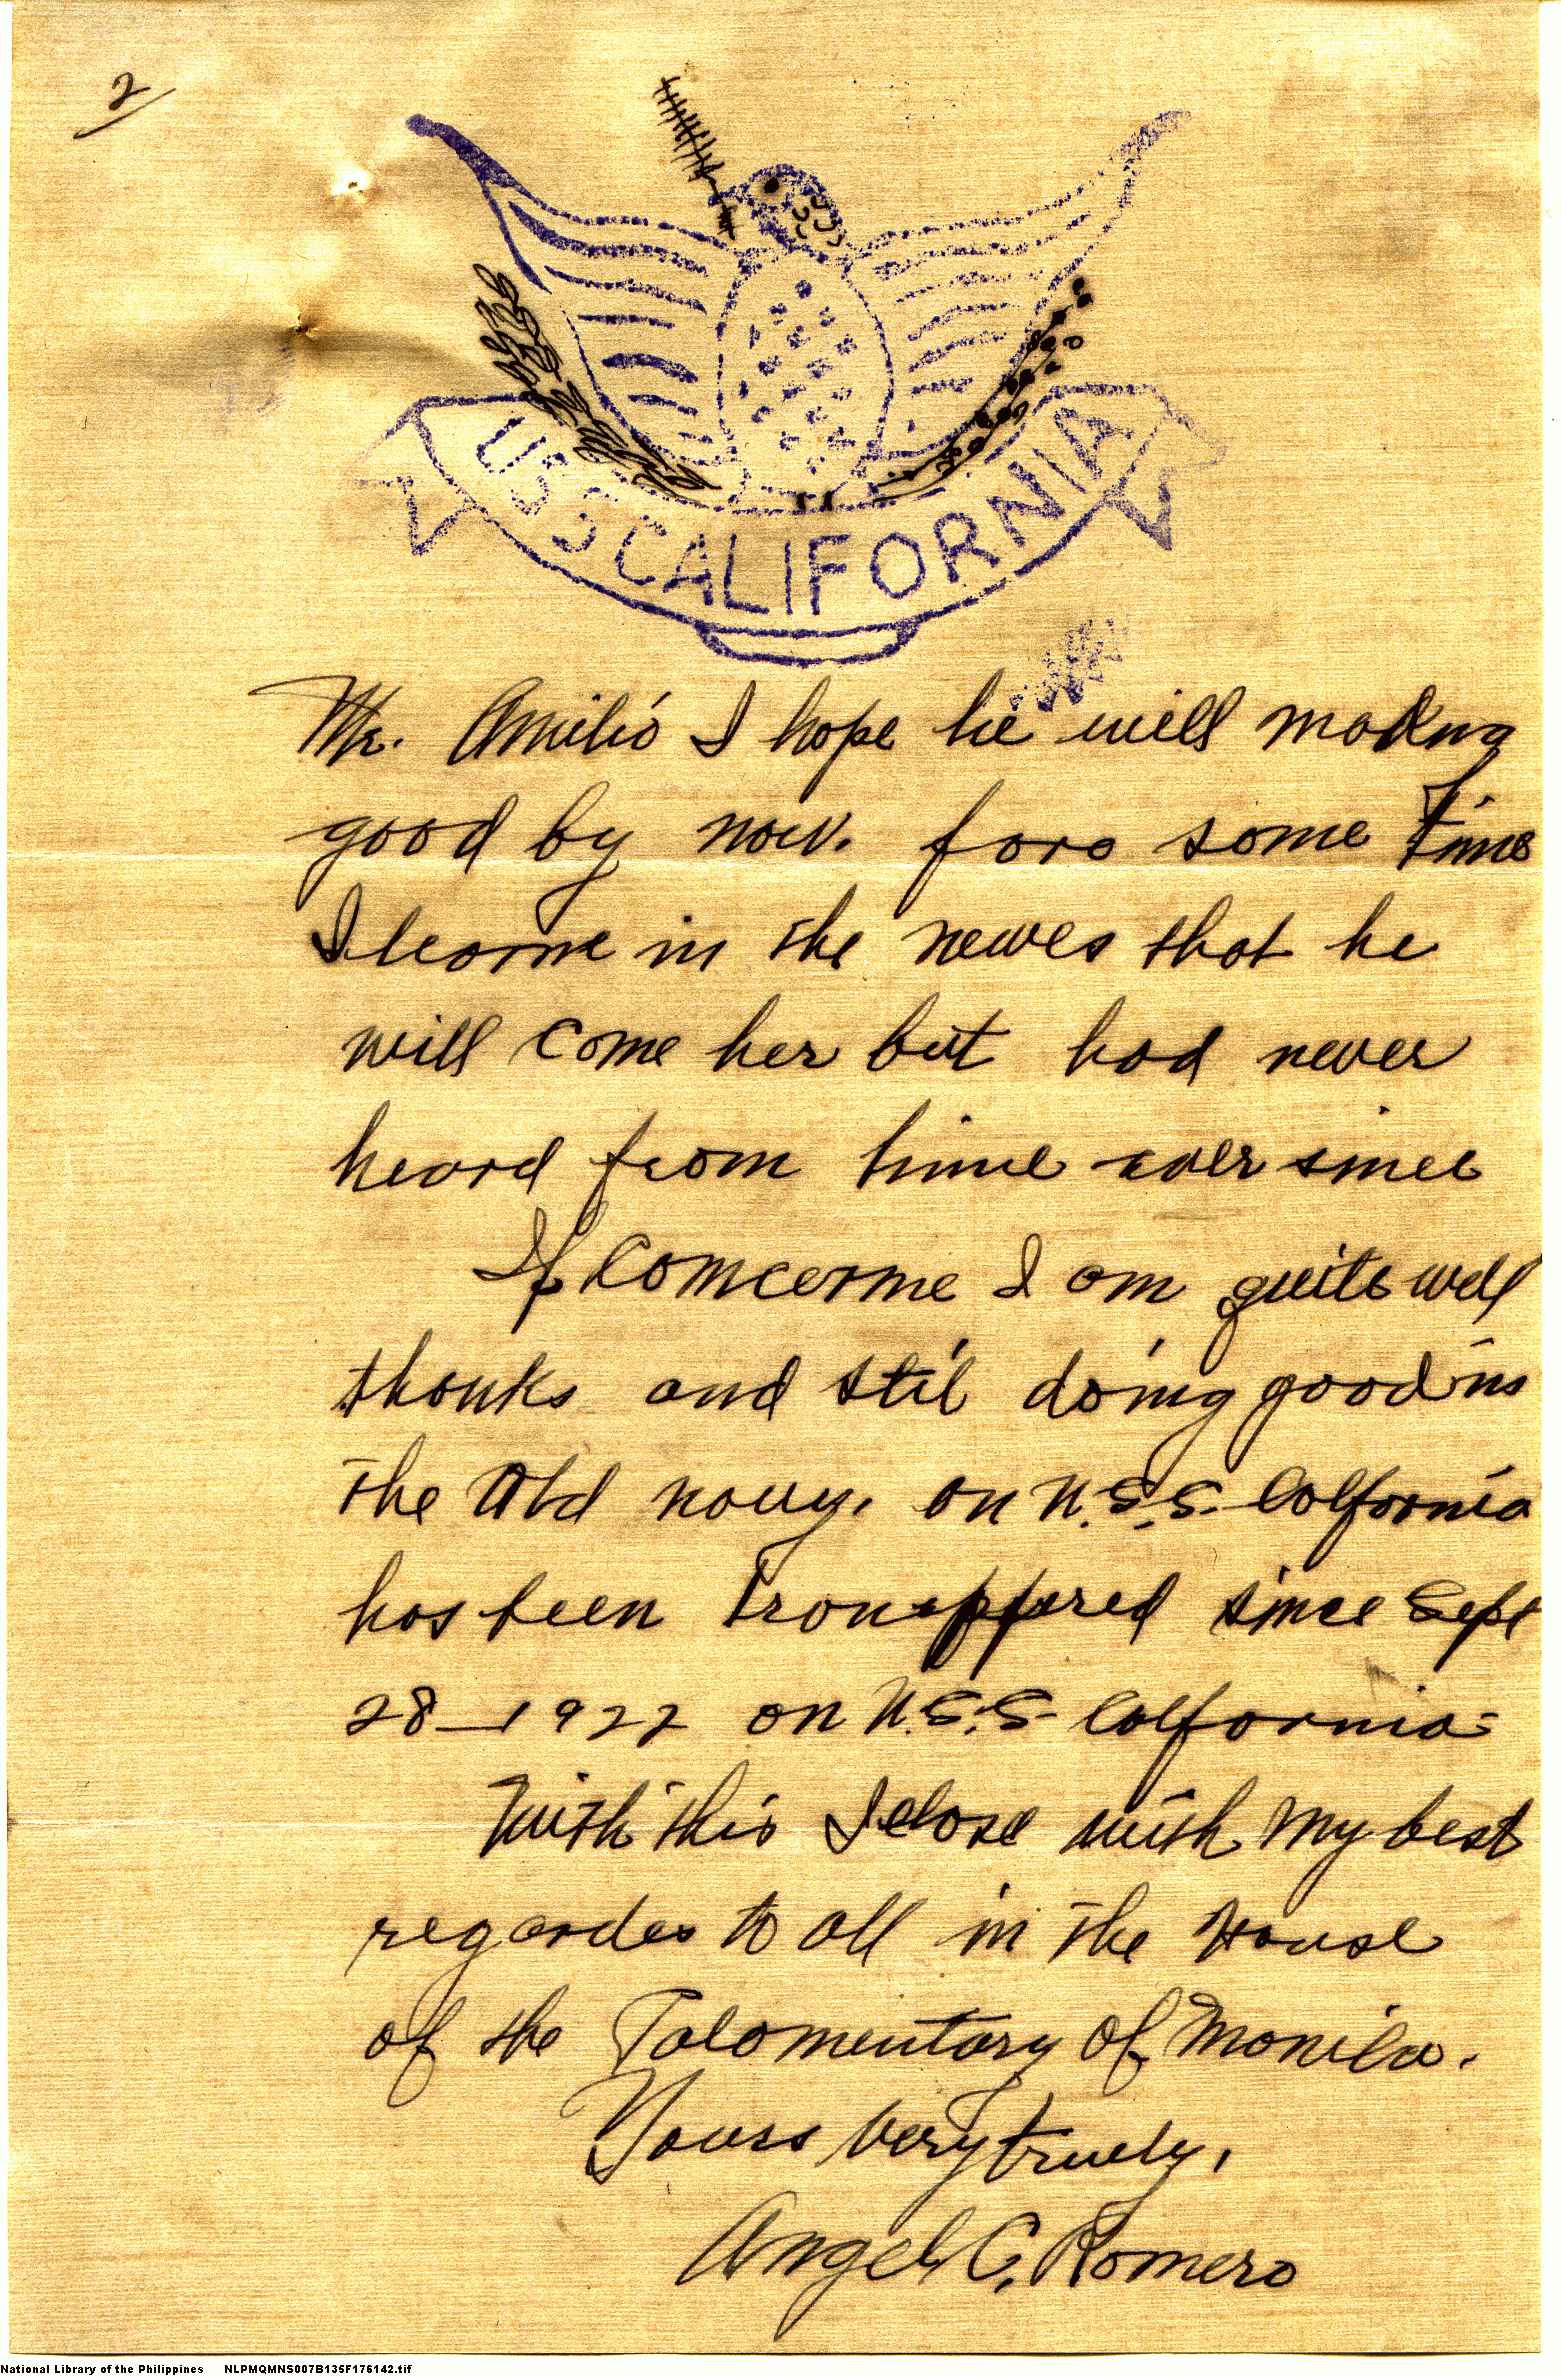 2
USS CALIFORNIA
Mr. Amilio I hope he will making
good by now. foro some time
I learne in the newes that he
will come her but had never
heard from hime ever since
If Concerne I am quite well
thanks and stil doing good in
the Old navy. on U.S.S. Colfornia
has been since Sept
28-1922 on U.S.S. Colfornia-
With this I close with my best
regardes to all in the House
of the Palamentary of Manila.
Yours very truely,
Angel C. Romero
National Library of the Philippines NLPMQMNS007B135F176142.tif